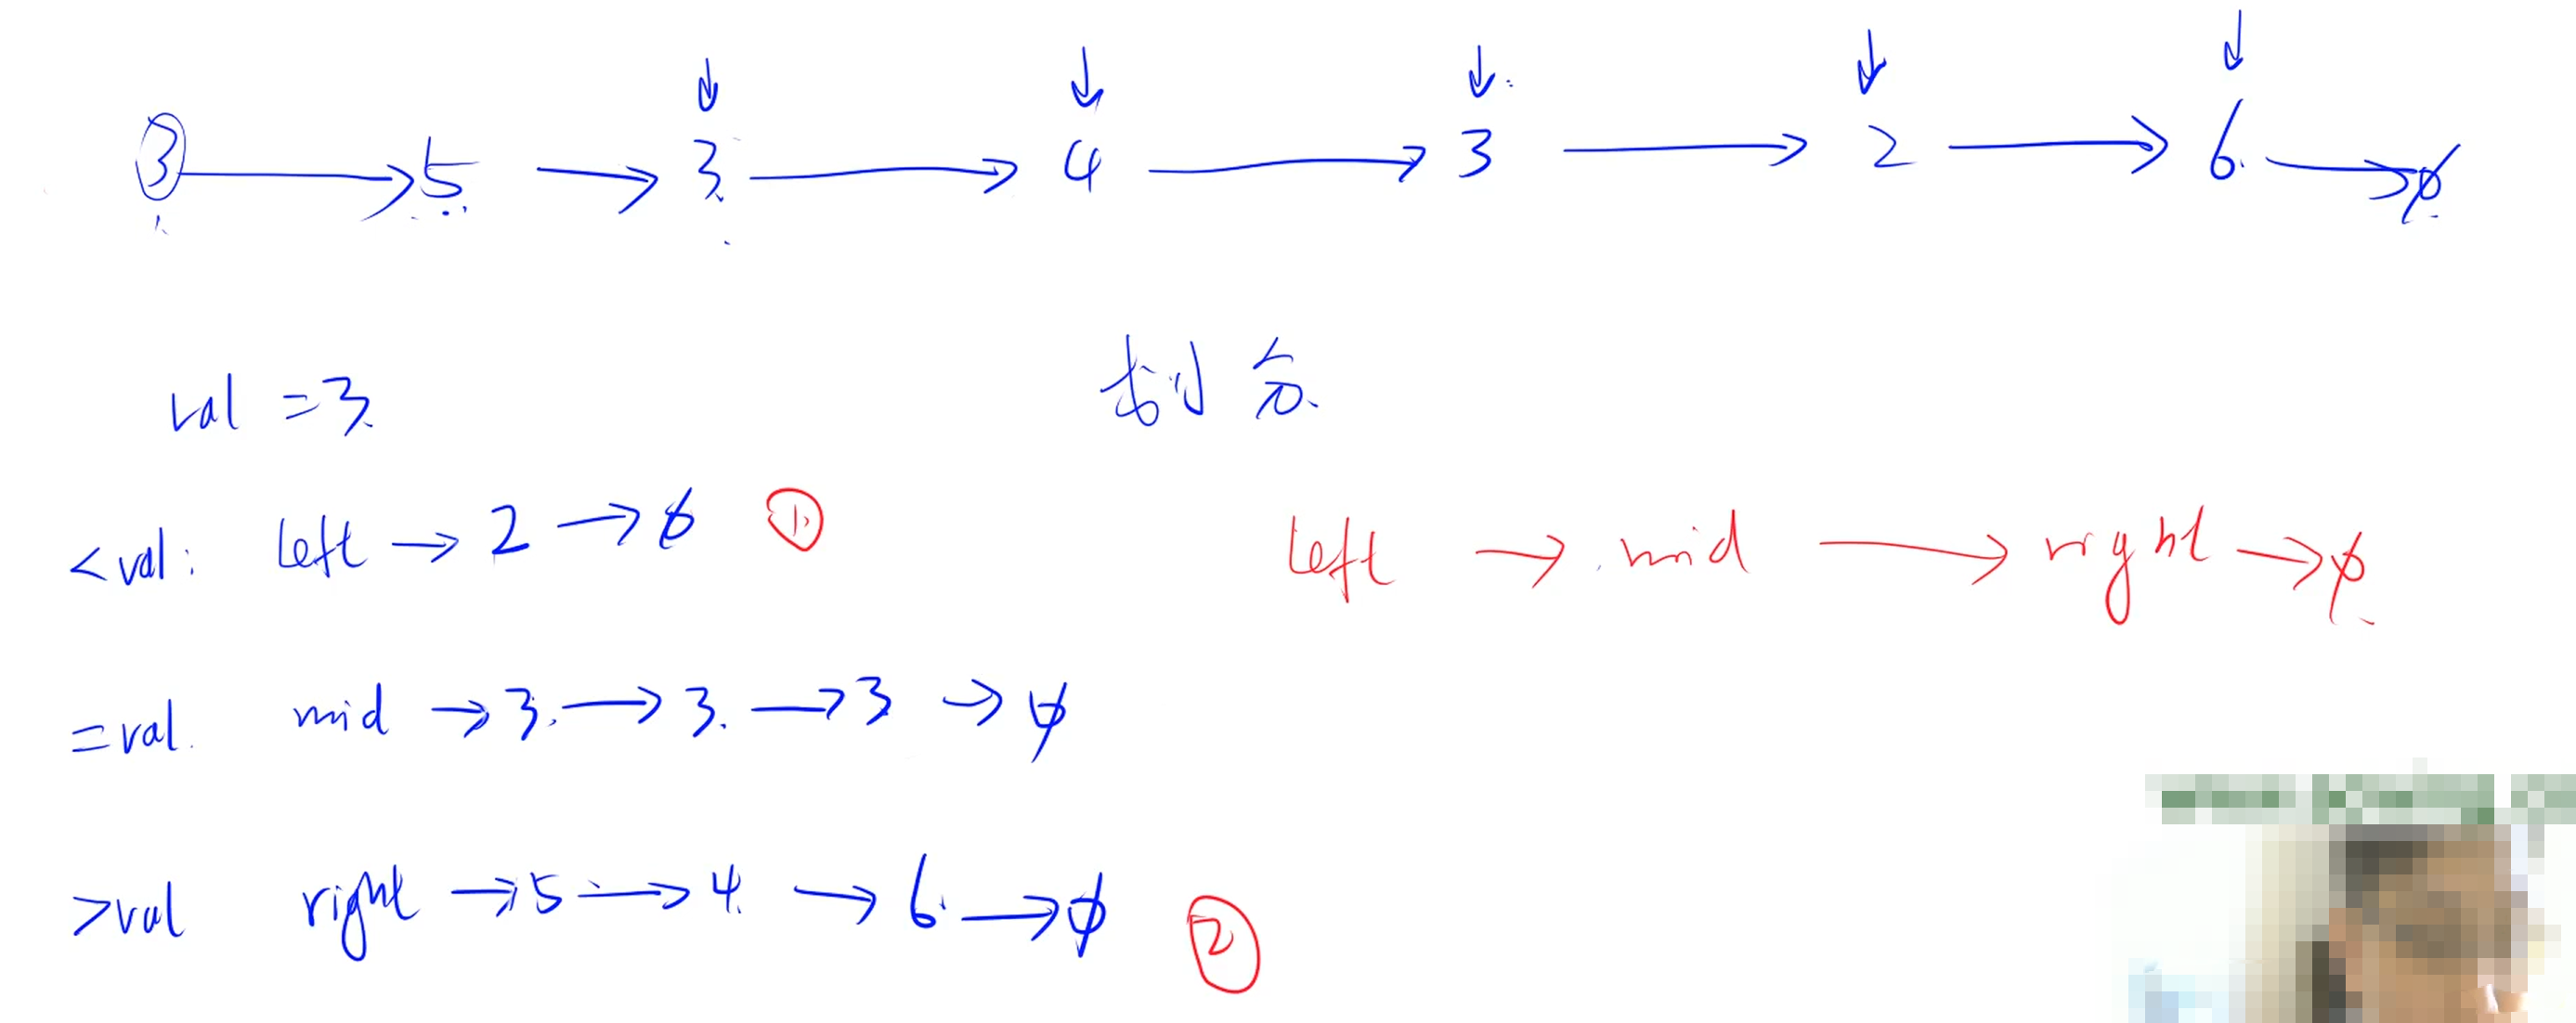 3 → 5 → 3 → 4 → 3 → 2 → 6 → ∅
val = 3
划分
<val: left → 2 → ∅ ①
left → mid → right → ∅
=val. mid → 3 → 3 → 3 → ∅
>val right → 5 → 4 → 6 → ∅ ②